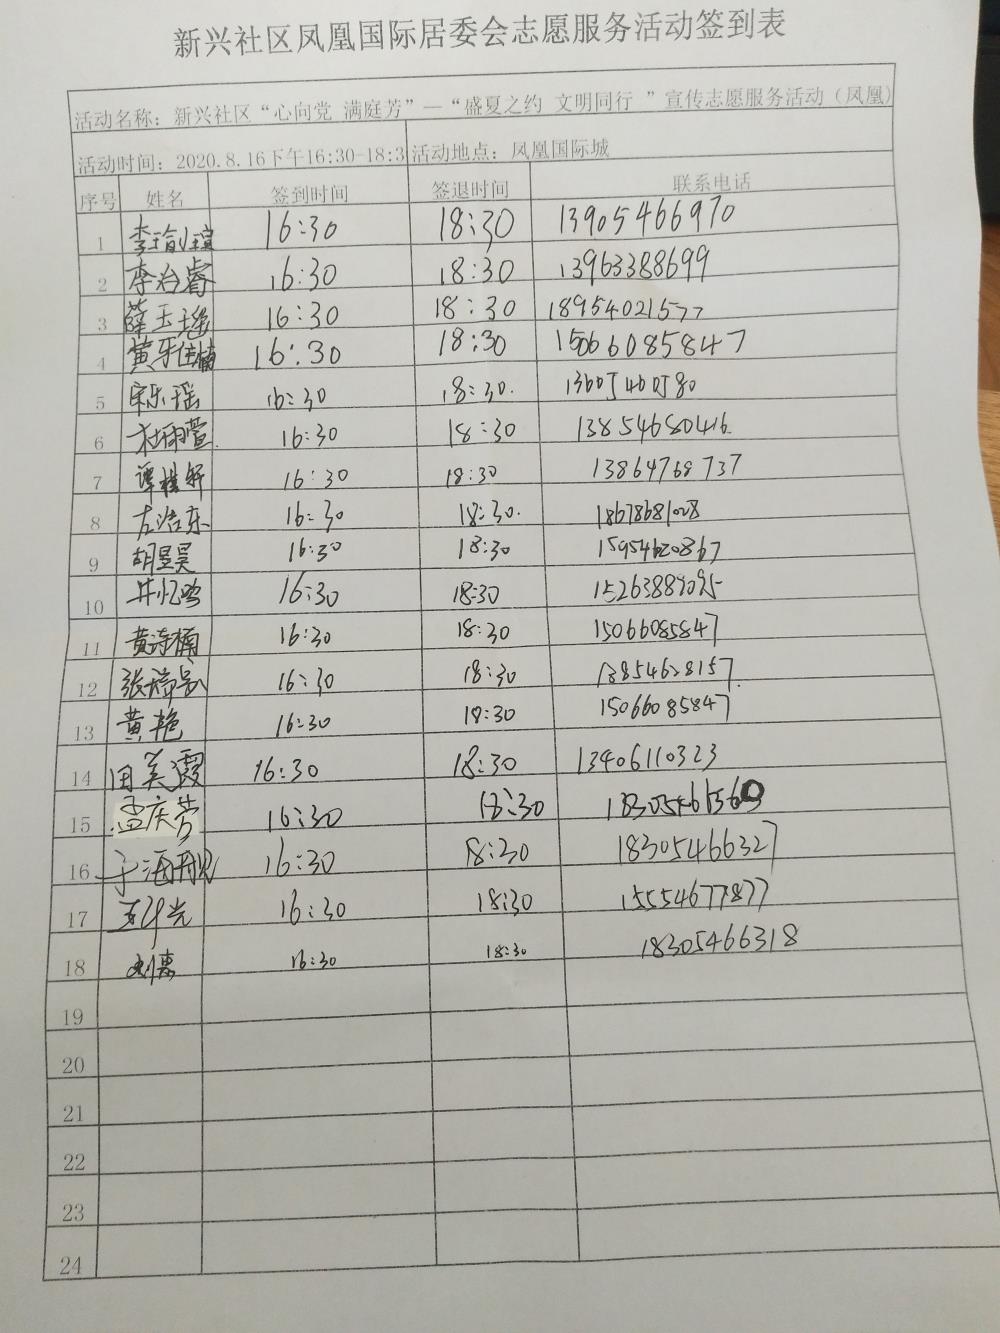 新兴社区凤凰国际居委会志愿服务活动签到表
活动名称：新兴社区“心向党 满庭芳”—“盛夏之约 文明同行 ”宣传志愿服务活动（凤凰）
活动时间：2020.8.16下午16:30-18:3 活动地点：凤凰国际城
序号 姓名 签到时间 签退时间 联系电话
1 16:30 18:30 13905466970
2 李治睿 16:30 18:30 13963388699
3 薛玉瑶 16:30 18:30 18954021577
4 16:30 18:30 15066085847
5 宋乐瑶 16:30 18:30.
6 杜雨萱 16:30 18:30 13854680416.
7 谭椿轩 16:30 18:30 13864768737
8 左浩东 16:30 18:30. 18678681028
9 胡昱昊 16:30 18:30 15954620867
10 16:30 18:30
11 黄诗楠 16:30 18:30 15066085847
12 16:30 18:30 13854628157
13 黄艳 16:30 18:30 15066085847
14 田美霞 16:30 18:30 13406110323
15 孟庆芳 16:30 18:30
16 16:30 18:30 18305466327
17 16:30 18:30 15554677877
18 刘惠 16:30 18:30 18305466318
19
20
21
22
23
24